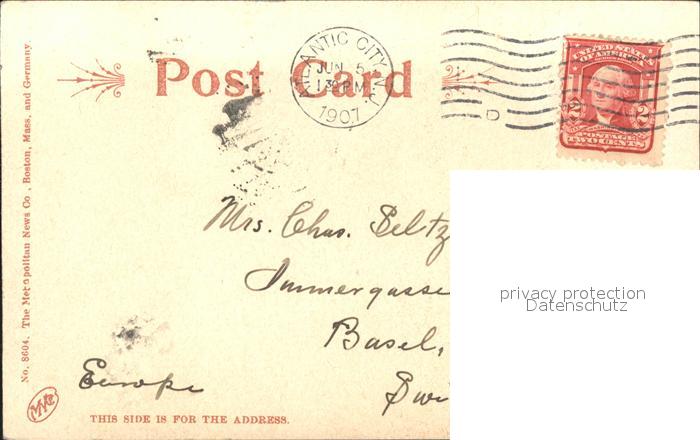 Post Card
ATLANTIC CITY, N.J.
JUN 5
1907
D
UNITED STATES
OF AMERICA
2 2
POSTAGE
TWO CENTS
Mrs. Chas. Seltz
Basel,
Swi
Europe
privacy protection
Datenschutz
THIS SIDE IS FOR THE ADDRESS.
No. 8604. The Metropolitan News Co., Boston, Mass. and Germany.